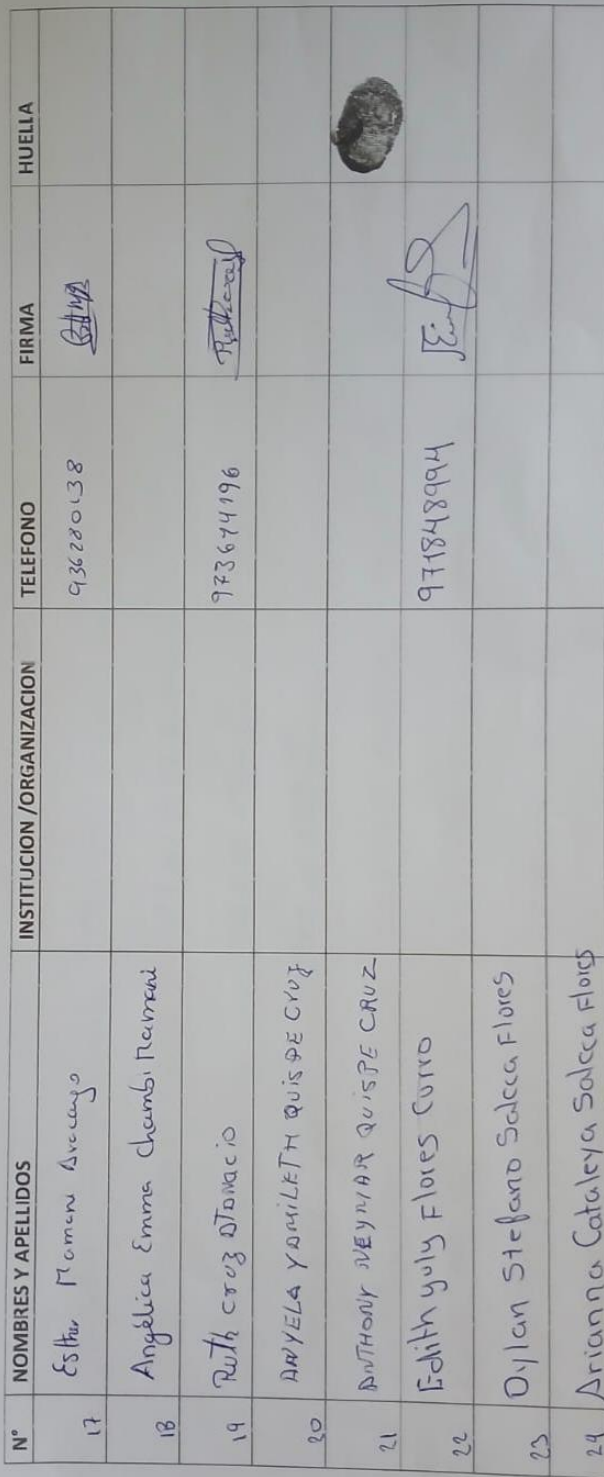 N° NOMBRES Y APELLIDOS INSTITUCION /ORGANIZACION TELEFONO FIRMA HUELLA
17 Esther Mamani 936280138
18 Angélica Emma Chambi Mamani
19 Ruth Cruz Atanacio 973674196
20 ANYELA YAMILETH QUISPE CRUZ
21 ANTHONY NEYMAR QUISPE CRUZ
22 Edith yuly Flores Curro 971848994
23 Dylan Stefano Salcca Flores
24 Arianna Cataleya Salcca Flores